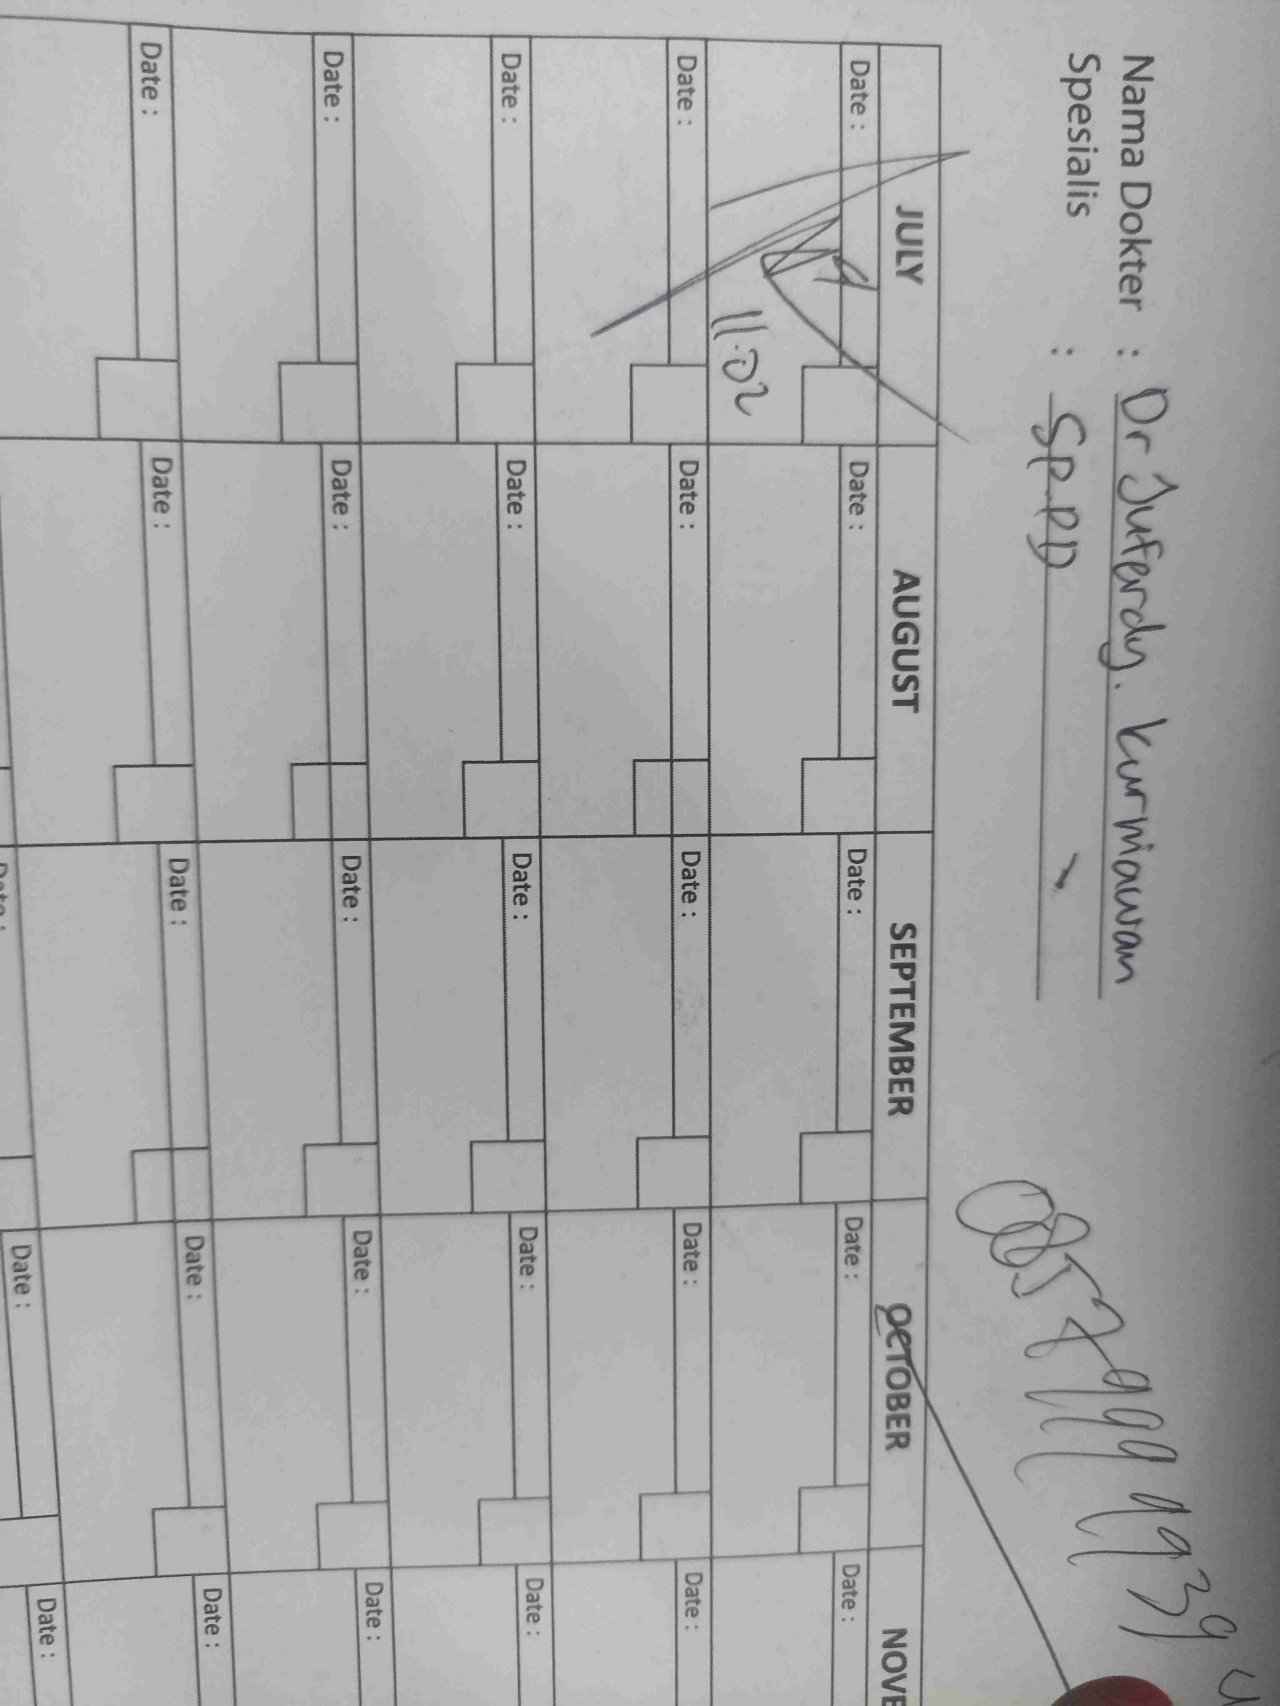 Nama Dokter : Dr Juferdy. Kurniawan
Spesialis : Sp.PD
JULY AUGUST SEPTEMBER OCTOBER NOVE
Date : Date : Date : Date : Date :
11.02
Date : Date : Date : Date : Date :
Date : Date : Date : Date : Date :
Date : Date : Date : Date : Date :
Date : Date : Date : Date : Date :
Date : Date : Date :